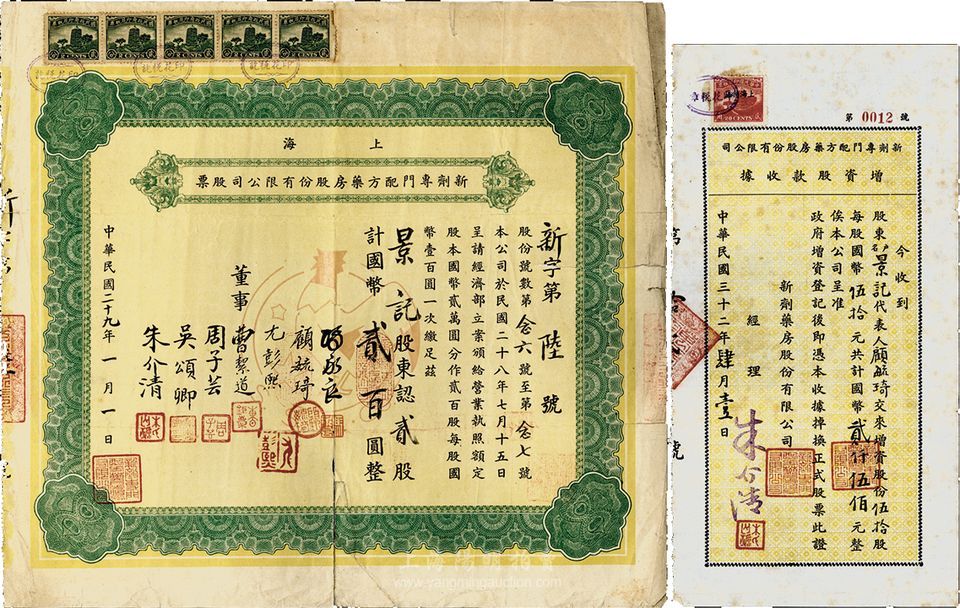 上海
新劑專門配方藥房股份有限公司股票
新字第陸號
股份號數第念六號至第念七號
本公司於民國二十八年七月十五日
呈請經濟部立案頒給營業執照額定
股本國幣貳萬圓分作貳百股每股國
幣壹百圓一次繳足茲
景記股東認貳股
計國幣貳百圓整
顧毓琦
尤彭熙
董事
曹絜道
周子芸
吳頌卿
朱介清
中華民國二十九年一月一日
第0012號
20 CENTS
新劑專門配方藥房股份有限公司
增資股款收據
今收到
股東戶景記代表人顧毓琦交來增資股份伍拾股
每股國幣伍拾元共計國幣貳仟伍佰元整
俟本公司呈准
政府增資登記後即憑本收據掉換正式股票此證
新劑藥房股份有限公司
經理
朱介清
中華民國三十二年肆月壹日
上海陽明拍賣
www.yangmingauction.com